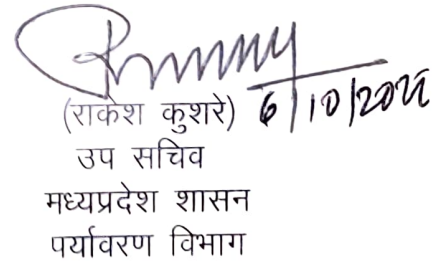 (राकेश कुशरे) 6/10/2022
उप सचिव
मध्यप्रदेश शासन
पर्यावरण विभाग